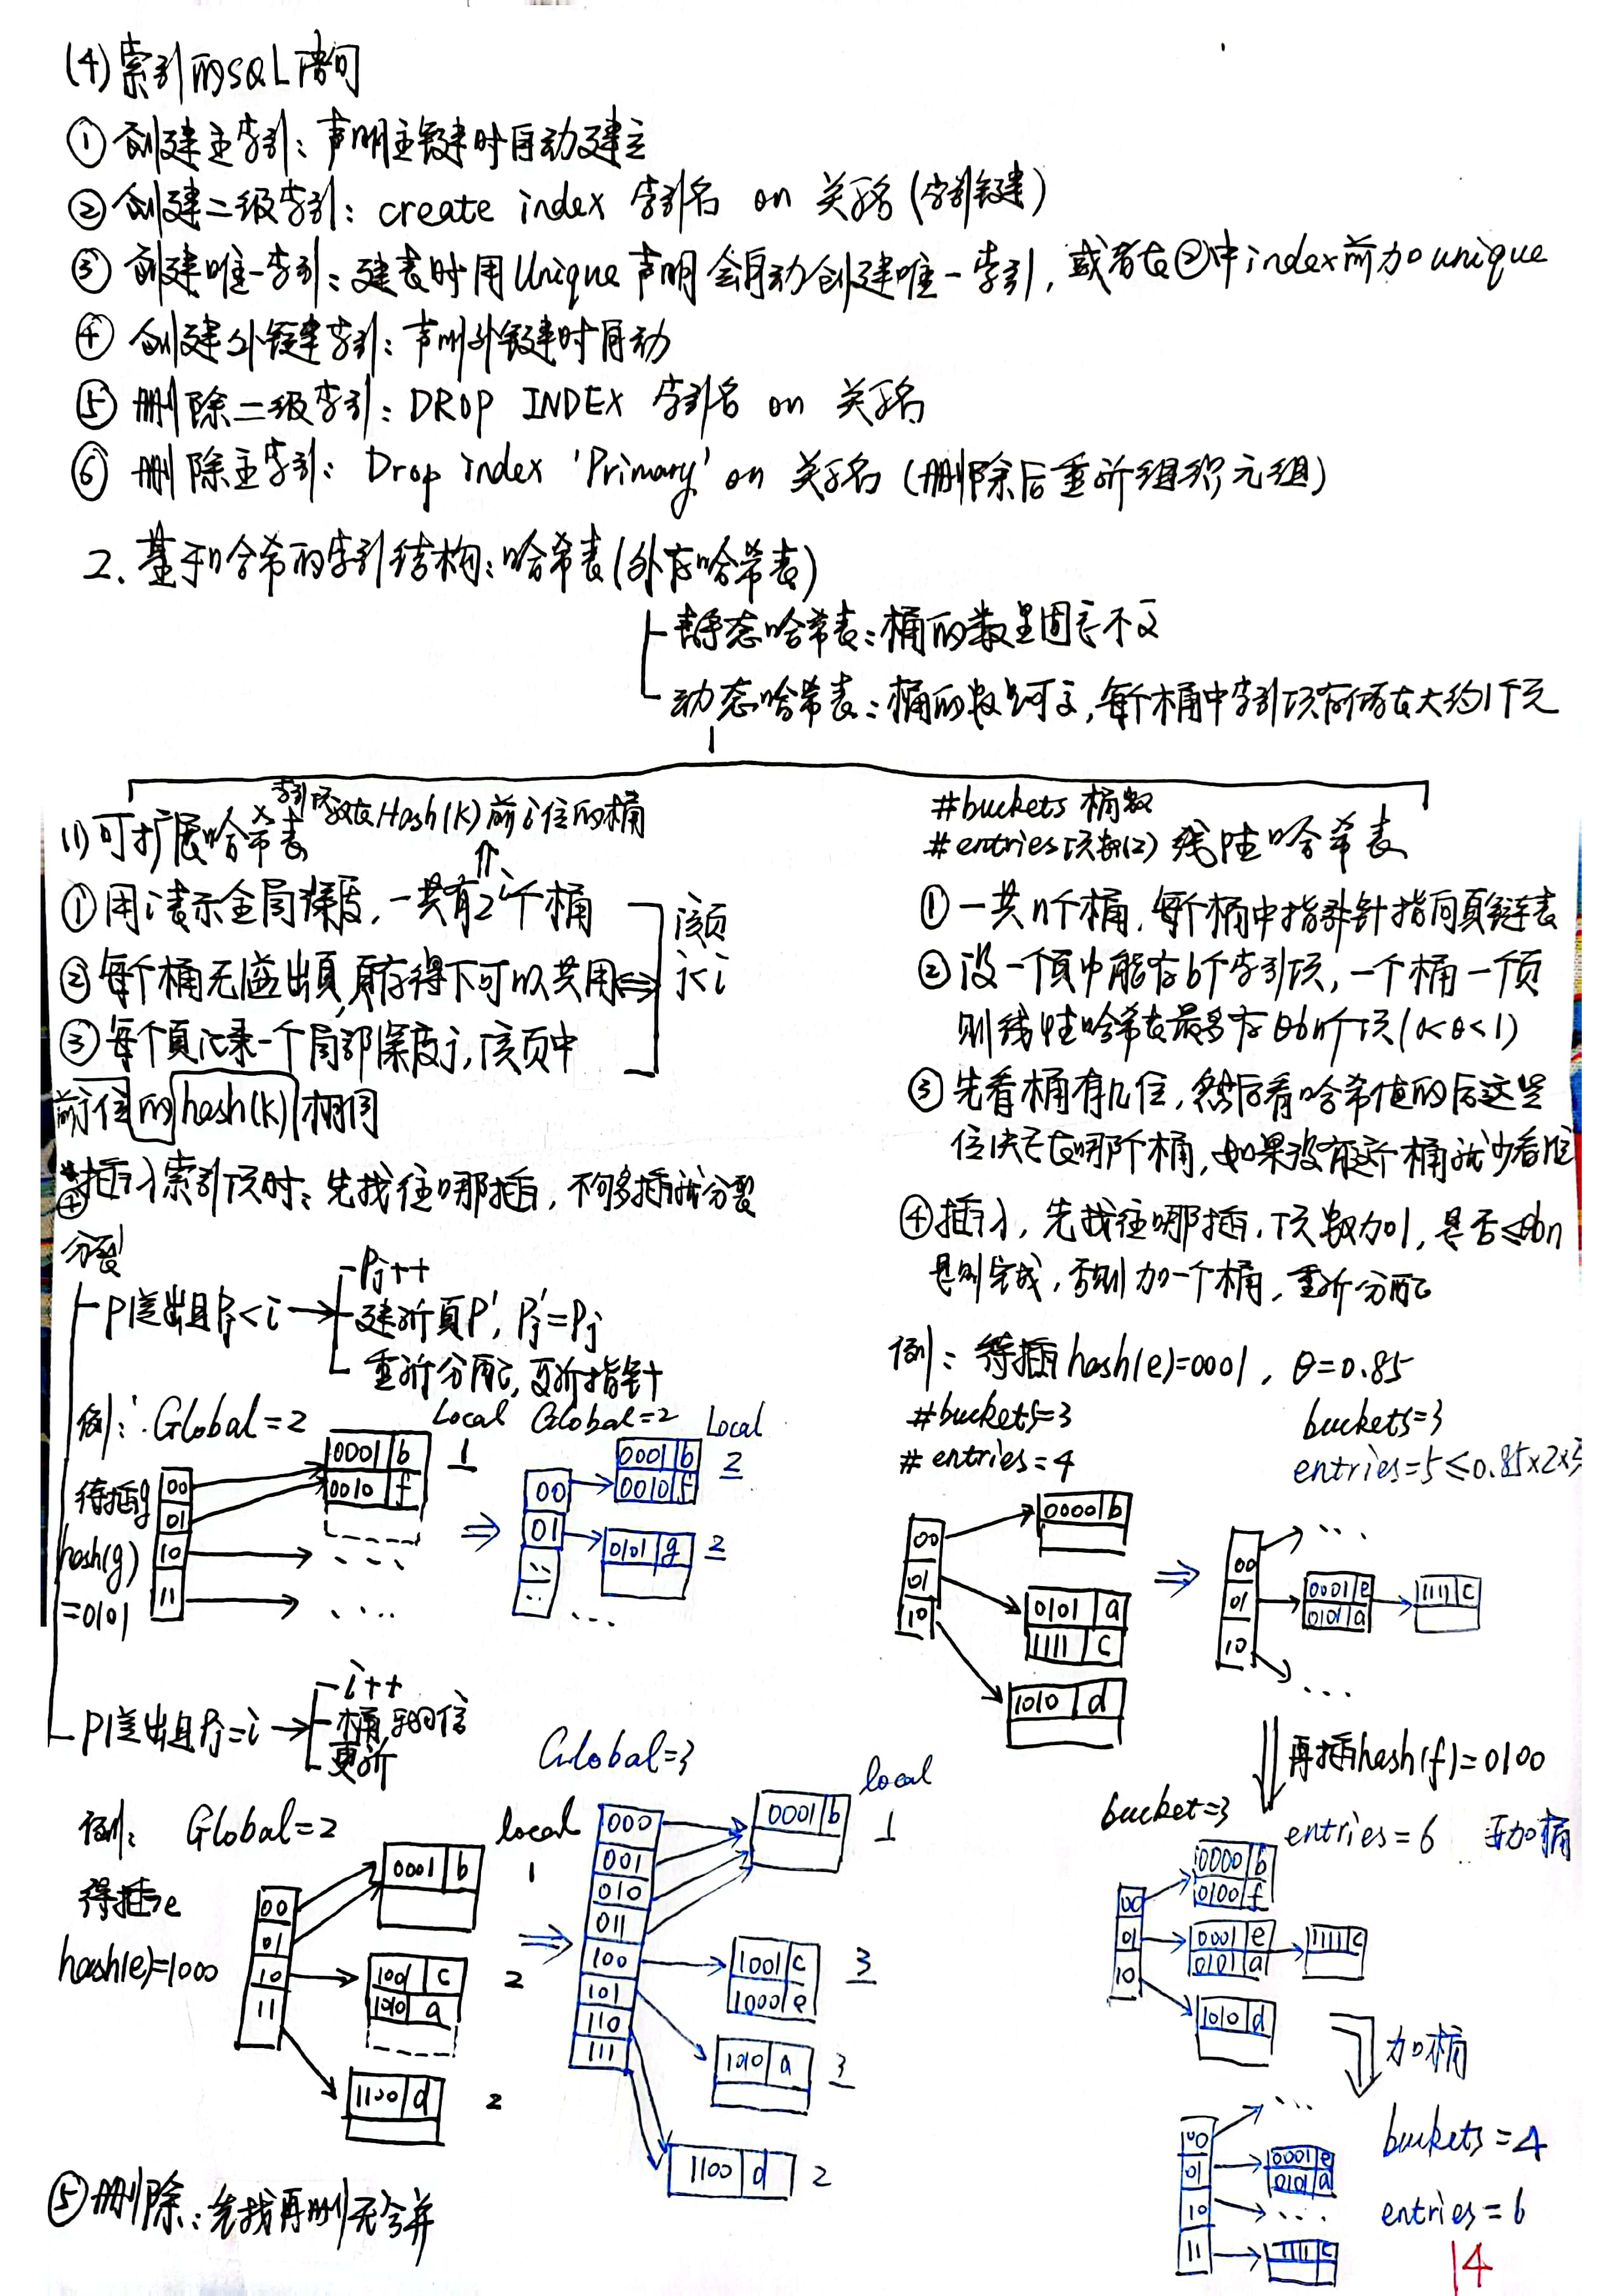 (4) 索引的SQL语句
① 创建主索引：声明主键时自动建立
② 创建二级索引：create index 索引名 on 关系名 (索引键)
③ 创建唯一索引：建表时用Unique声明会自动创建唯一索引，或者在②中index前加unique
④ 创建外键索引：声明外键时自动
⑤ 删除二级索引：DROP INDEX 索引名 on 关系名
⑥ 删除主索引：Drop index 'Primary' on 关系名 (删除后重新组织元组)
2. 基于哈希的索引结构：哈希表(外存哈希表)
静态哈希表：桶的数量固定不变
动态哈希表：桶的数量可变，每个桶中索引项存储在大约1个页
索引项放在Hash(K)前i位的桶
(1) 可扩展哈希表
① 用i表示全局深度，一共有2^i个桶
② 每个桶无溢出頁，頁存得下可以共用⇔
③ 每个頁记录一个局部深度j，该页中
前j位的hash(K)相同
该页
j<i
④ 插入索引项时：先找往哪插，不够插就分裂
分裂
P溢出且Pj<i →
Pj++
建新頁P', P'j=Pj
重新分配，更新指针
例：Global=2
Local
待插g
hash(g)
=0101
00
01
10
11
0001 b
0010 f
1
....
....
⇒
Global=2
Local
00
01
..
..
0001 b
0010 f
2
0101 g
2
...
P溢出且Pj=i →
i++
桶
更新
例：Global=2
local
待插e
hash(e)=1000
00
01
10
11
0001 b
1
1001 c
1010 a
2
1100 d
2
⇒
Global=3
local
000
001
010
011
100
101
110
111
0001 b
1
1001 c
1000 e
3
1010 a
3
1100 d
2
⑤ 删除：先找再删无合并
#buckets 桶数
#entries 项数
(2) 线性哈希表
① 一共n个桶，每个桶中指针指向頁链表
② 设一个頁中能存b个索引项，一个桶一个页
则线性哈希表最多存θbn个项(0<θ<1)
③ 先看桶有几位，然后看哈希值的后这些
位决定在哪个桶，如果没有这个桶就少看1位
④ 插入，先找往哪插，项数加1，是否≤θbn
是则完成，否则加一个桶，重新分配
例：待插hash(e)=0001，θ=0.85
#buckets=3
#entries=4
00
01
10
0000 b
0101 a
1111 c
1010 d
⇒
buckets=3
entries=5≤0.85×2×3
00
01
10
...
0001 e
0101 a
1111 c
...
再插hash(f)=0100
bucket=3
entries=6 要加桶
00
01
10
0000 b
0100 f
0001 e
0101 a
1111 c
1010 d
加桶
buckets=4
entries=6
00
01
10
11
...
0001 e
0101 a
...
1111 c
14